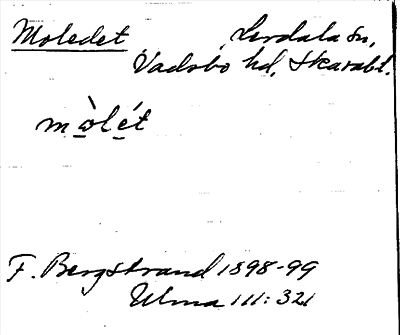 Moledet Lerdala sn,
Vadsbo hd, Skarabl.
mò̲lé̲t
F. Bergstrand 1898-99
Ulma 111:321